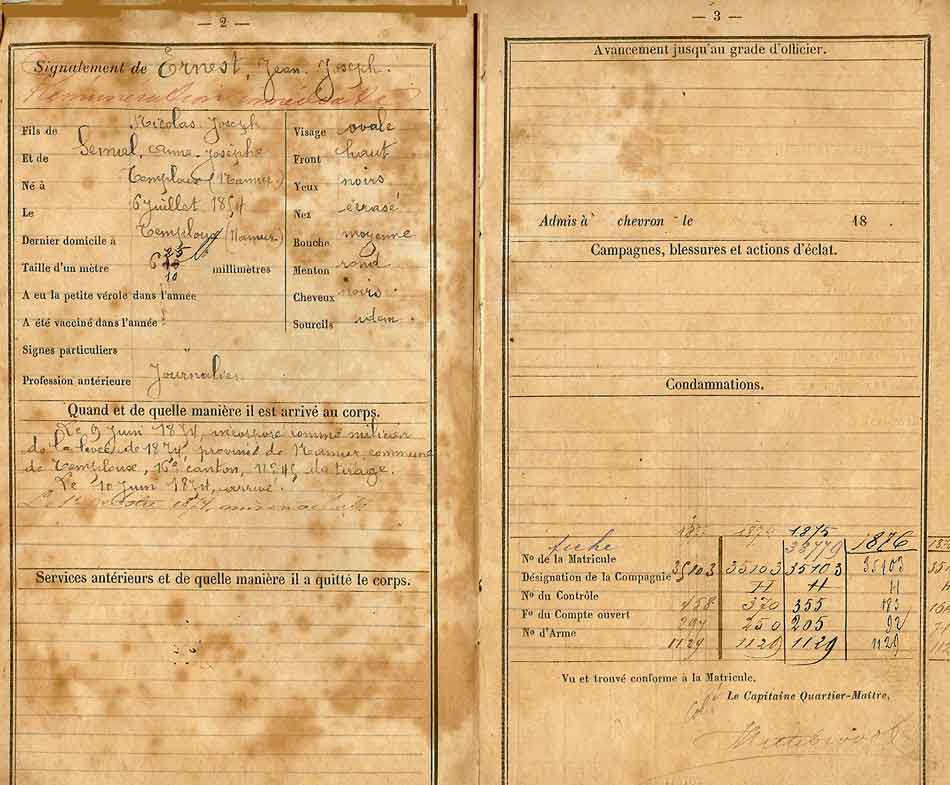 — 2 —
Signalement de Ernest, Jean. Joseph.
Fils de Nicolas Joseph
Et de Anne-Josèphe
Né à Temploux (Namur.)
Le 16 Juillet 1854
Dernier domicile à Temploux (Namur.)
Taille d'un mètre 6 25 10 millimètres
A eu la petite vérole dans l'année
A été vacciné dans l'année
Signes particuliers "
Profession antérieure Journalier
Visage ovale
Front haut
Yeux noirs
Nez écrasé
Bouche moyenne
Menton rond
Cheveux noirs.
Sourcils idem.
Quand et de quelle manière il est arrivé au corps.
Le 9 Juin 1874, incorporé comme milicien
de la levée de 1874 province de Namur commune
de Temploux, canton, du tirage.
Le 10 Juin 1874, arrivé.
Le 1874,
Services antérieurs et de quelle manière il a quitté le corps.
— 3 —
Avancement jusqu'au grade d'officier.
Admis à chevron le 18
Campagnes, blessures et actions d'éclat.
Condamnations.
1875 1876
fiche 38779
No de la Matricule 35103 35103 35103 35103
Désignation de la Compagnie H H H
No du Contrôle 458 370 355 183
Fo du Compte ouvert 297 250 205 92
No d'Arme 1129 1129 1129 1129
Vu et trouvé conforme à la Matricule.
Le Capitaine Quartier-Maître,